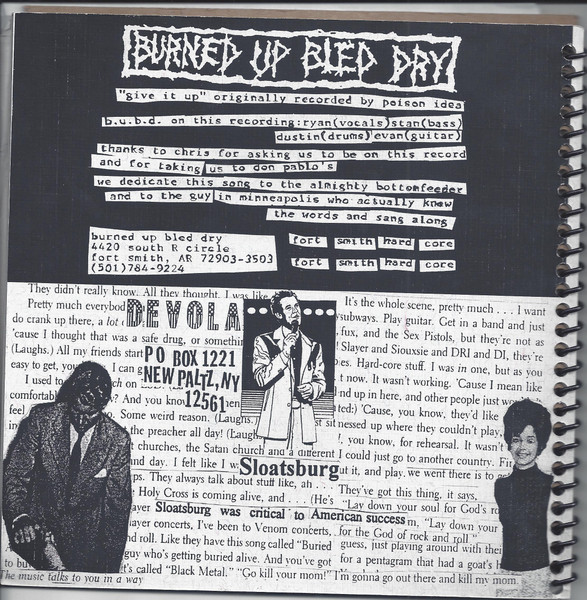 BURNED UP BLED DRY
"give it up" originally recorded by poison idea
b.u.b.d. on this recording:ryan(vocals)stan(bass)
dustin(drums)evan(guitar)
thanks to chris for asking us to be on this record
and for taking us to don pablo's
we dedicate this song to the almighty bottomfeeder
and to the guy in minneapolis who actually knew
the words and sang along
burned up bled dry
4420 south R circle
fort smith, AR 72903-3503
(501)784-9224
fort smith hard core
fort smith hard core
They didn't really know. All they thought, I was like
Pretty much everybod
do crank up there, a lot
'cause I thought that was a safe drug, or somethin
(Laughs.) All my friends start
easy to get, you I can g
I used to ch on
comfortab And you know
feel, oo. Some weird reason. (Laughs.
the preacher all day! (Laugh
churches, the Satan church and a different
und day. I felt like I w
ps. They always talk about stuff like, ah . . .
Holy Cross is coming alive, and . . . (He's
ayer
layer concerts, I've been to Venom concerts,
and roll. Like they have this song called "Buried
guy who's getting buried alive. And you've got
to bu t's called "Black Metal." "Go kill your mom!"
The music talks to you in a way
DEVOLA
PO BOX 1221
NEW PALTZ, NY
12561
Sloatsburg
Sloatsburg was critical to American success
It's the whole scene, pretty much . . . I want
subways. Play guitar. Get in a band and just
fux, and the Sex Pistols, but they're not as
Slayer and Siouxsie and DRI and DI, they're
es. Hard-core stuff. I was in one, but as you
t now. It wasn't working. 'Cause I mean like
nd up in here, and other people just would
ted;) 'Cause, you know, they'd like
nessed up where they couldn't play,
!, you know, for rehearsal. It wasn't
I could just go to another country. Fi
ut it, and play, we went there is to go
They've got this thing, it says,
"Lay down your soul for God's ro
m, "Lay down your
for the God of rock and roll "
guess, just playing around with thei
for a pentagram that had a goat's h
I'm gonna go out there and kill my mom.